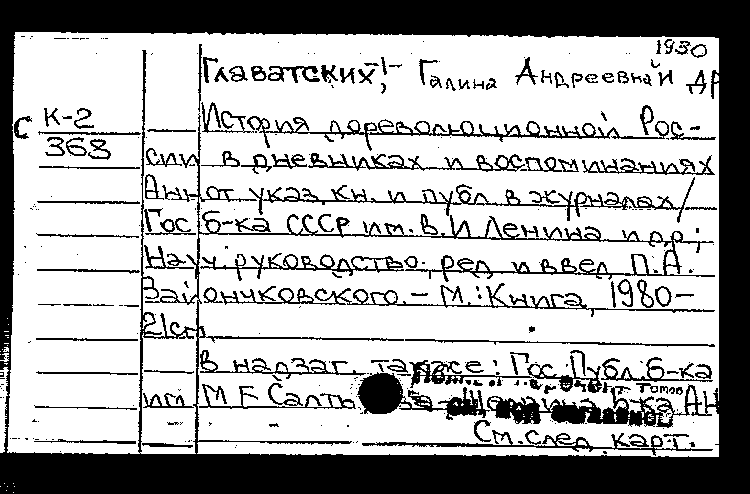 1930
Главатских, Галина Андреевна и др
С К-2
368
История дореволюционной Рос-
сии в дневниках и воспоминаниях
Аннот указ. кн. и публ в журналах /
Гос б-ка СССР им. В. И Ленина и др.;
Науч. руководство, ред и введ П. А.
Зайончковского. – М.: Книга, 1980 –
21см.
В надзаг. также: Гос. Публ б-ка
им М Е Салты Щедрина, б-ка АН
томов
См. след карт.